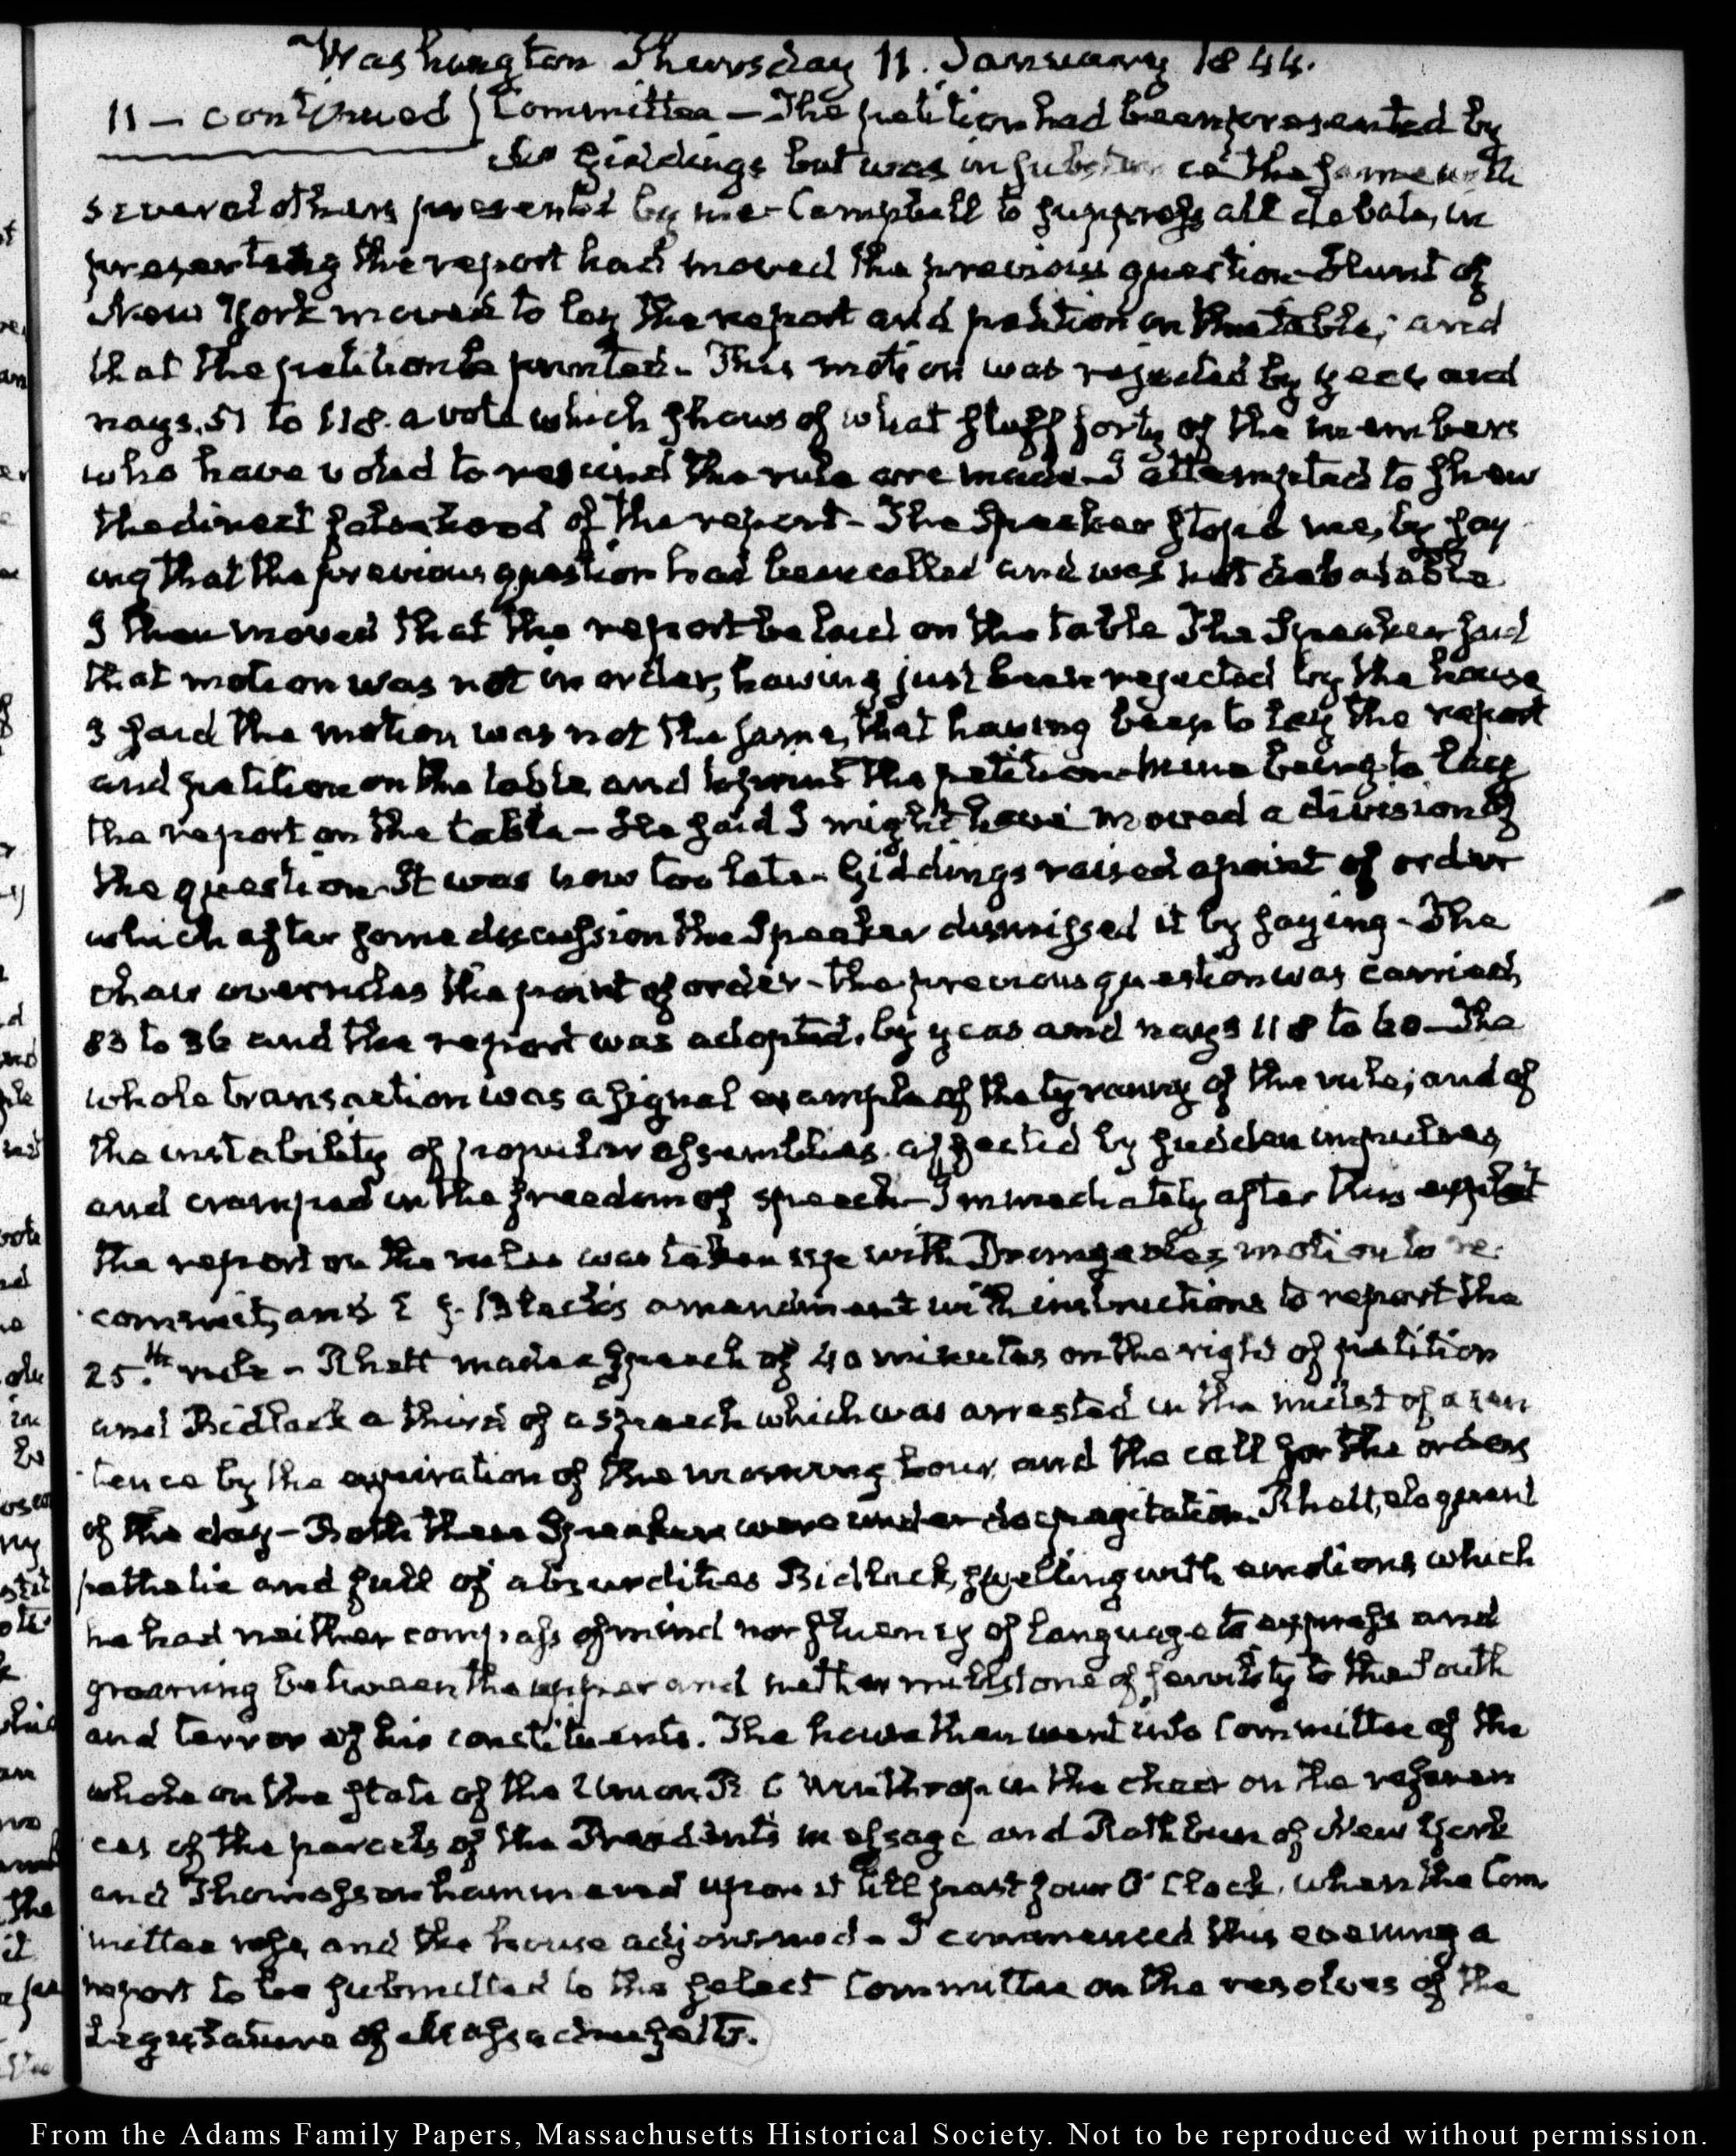 Washington Thursday 11. January 1844.
11 — continued } Committee — The petition had been presented by
Mr Giddings but was in substance the same with
several others presented by me - Campbell to suppress all debate, in
presenting the report had moved the previous question - Hunt of
New York moved to lay the report and petition on the table; and
that the petition be printed. This motion was rejected by yeas and
nays. 51 to 118. a vote which shows of what stuff forty of the members
who have voted to rescind the rule are made - I attempted to show
the direct falsehood of the report - The Speaker stop'd me, by say
ing that the previous question had been called and was not debatable
I then moved that the report be laid on the table The Speaker said
that motion was not in order, having just been rejected by the house
I said the motion was not the same, that having been to lay the report
and petition on the table, and to print the petition - mine being to lay
the report on the table - He said I might have moved a division of
the question. It was now too late - Giddings raised a point of order
which after some discussion the Speaker dismissed it by saying - The
chair overrules the point of order - the previous question was carried,
83 to 36 and the report was adopted. by yeas and nays 118 to 60 - The
whole transaction was a signal example of the tyranny of the rule; and of
the instability of popular assemblies. affected by sudden impulses,
and cramped in the freedom of speech - Immediately after this exploit
the report on the rules was taken up with Dromgoole's motion to re-
commit, and E J. Black's amendment with instructions to report the
25.th rule - Rhett made a speech of 40 minutes on the right of petition
and Bidlack a third of a speech which was arrested in the midst of a sen
tence by the expiration of the morning hour, and the call for the orders
of the day - Both these Speakers were under deep agitation. Rhett, eloquent
pathetic and full of absurdities Bidlack, swelling with emotions which
he had neither compass of mind nor fluency of language to express and
groaning between the upper and nether millstone of servility to the South
and terror of his constituents. The house then went into Committee of the
whole on the state of the Union, R. C Winthrop in the chair on the referen
ces of the parcels of the President's message and Rathbun of New York
and Thomasson hammered upon it till past four O'Clock, when the Com
mittee rose, and the house adjourned - I commenced this evening a
report to be submitted to the select Committee on the resolves of the
Legislature of Massachusetts.
From the Adams Family Papers, Massachusetts Historical Society. Not to be reproduced without permission.